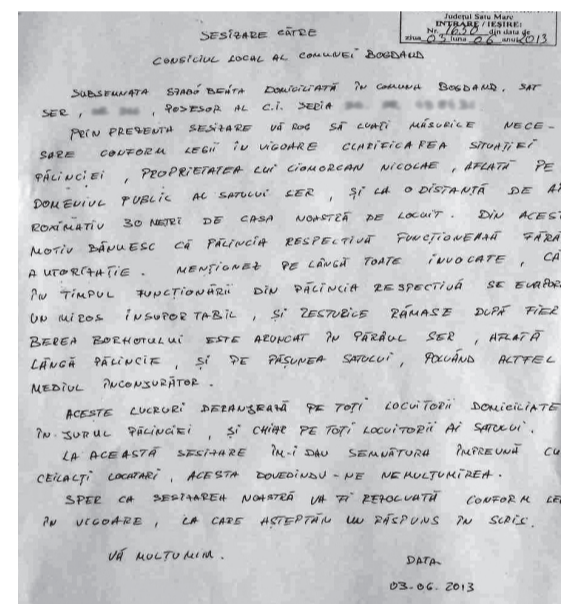 Județul Satu Mare
INTRARE / IEȘIRE:
Nr. 1650 din data de
ziua 03 luna 06 anul 2013
SESIZARE CĂTRE
CONSILIUL LOCAL AL COMUNEI BOGDAND
SUBSEMNATA SZABÓ BEÁTA DOMICILIATĂ ÎN COMUNA BOGDAND, SAT
SER, POSESOR AL C.I. SERIA
PRIN PREZENTA SESIZARE VĂ ROG SĂ LUAȚI MĂSURILE NECE-
SARE CONFORM LEGII ÎN VIGOARE CLARIFICAREA SITUAȚIEI
PĂLINCIEI, PROPRIETATEA LUI CIOMORCAN NICOLAE, AFLATĂ PE
DOMENIUL PUBLIC AL SATULUI SER, ȘI LA O DISTANȚĂ DE AP
ROXIMATIV 30 METRI DE CASA NOASTRĂ DE LOCUIT. DIN ACEST
MOTIV BĂNUESC CĂ PĂLINCIA RESPECTIVĂ FUNCȚIONEAZĂ FĂRĂ
AUTORIZAȚIE. MENȚIONEZ PE LÂNGĂ TOATE INVOCATE, CĂ
ÎN TIMPUL FUNCȚIONĂRII DIN PĂLINCIA RESPECTIVĂ SE EVAPOR
UN MIROS INSUPORTABIL, ȘI RESTURILE RĂMASE DUPĂ FIER
BEREA BORHOTULUI ESTE ARUNCAT ÎN PÂRÂUL SER, AFLATĂ
LÂNGĂ PĂLINCIE, ȘI PE PĂȘUNEA SATULUI, POLUÂND ALTFEL
MEDIUL ÎNCONJURĂTOR.
ACESTE LUCRURI DERANJEAZĂ PE TOȚI LOCUITORII DOMICILIATE
ÎN JURUL PĂLINCIEI, ȘI CHIAR PE TOȚI LOCUITORII AI SATULUI.
LA ACEASTĂ SESIZARE ÎM-I DAU SEMNĂTURA ÎMPREUNĂ CU
CEILALȚI LOCATARI, ACESTA DOVEDINDU-NE NEMULȚUMIREA.
SPER CA SESIZAREA NOASTRĂ VA FI REZOLVATĂ CONFORM LE
ÎN VIGOARE, LA CARE AȘTEPTĂM UN RĂSPUNS ÎN SCRIS.
VĂ MULȚUMIM.
DATA
03-06.2013